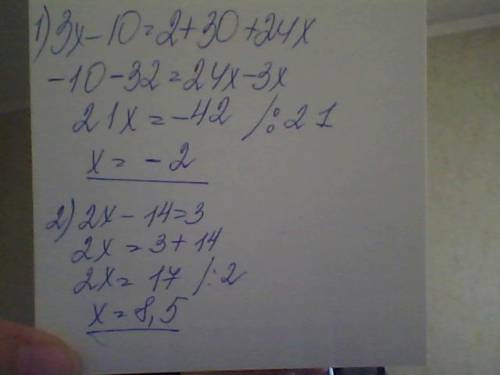 1) 3x-10=2+30+24x
-10-32=24x-3x
21x=-42 /:21
x=-2
2) 2x-14=3
2x=3+14
2x=17 /:2
x=8,5